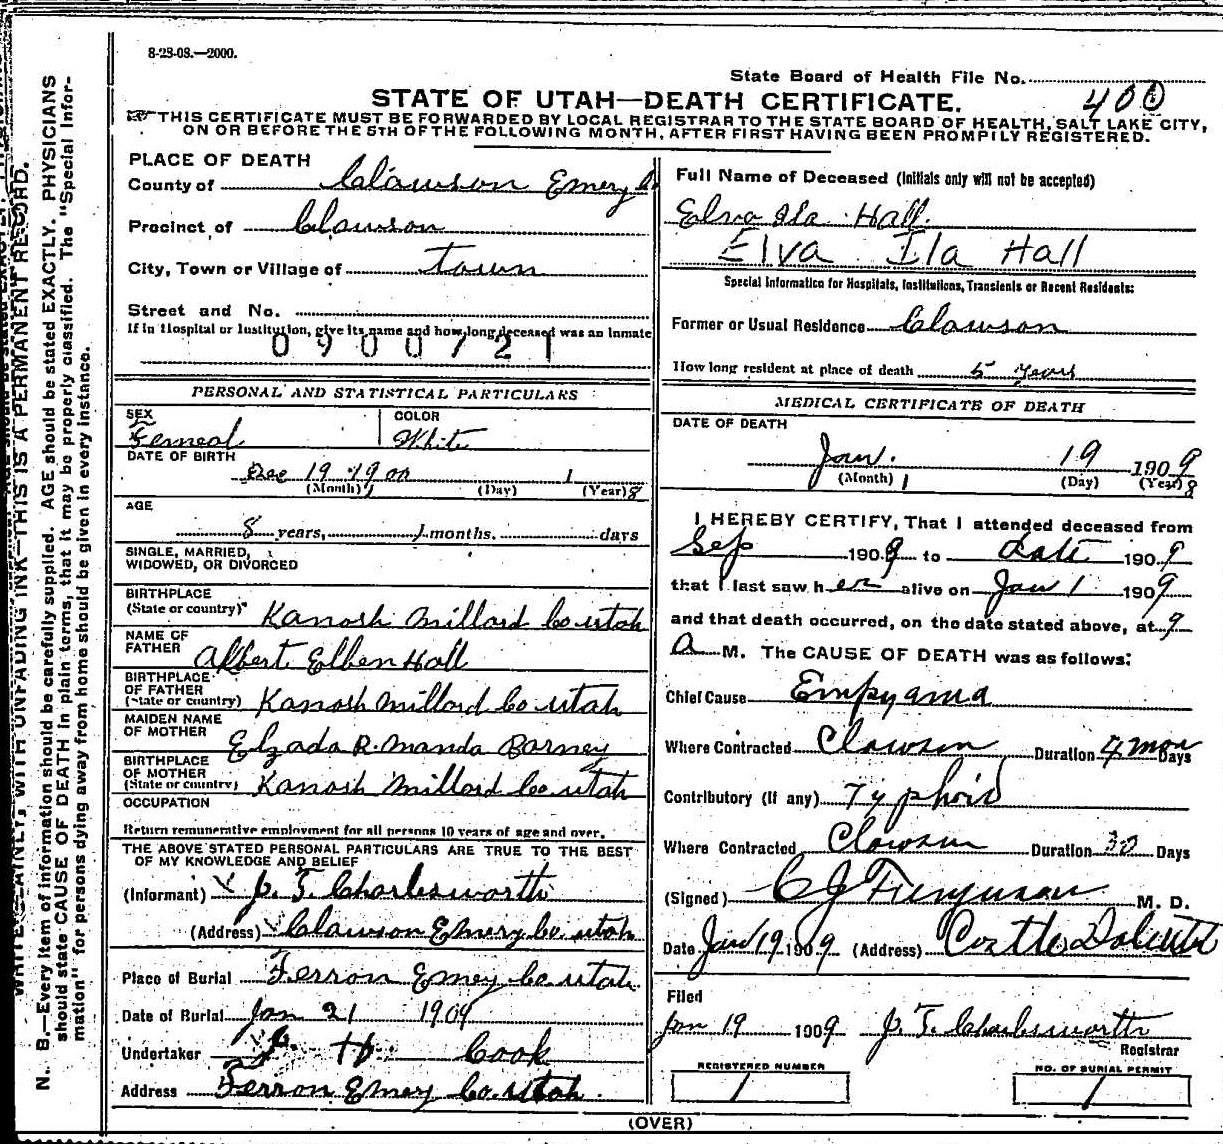 8-28-08.—2000.
State Board of Health File No.
400
STATE OF UTAH—DEATH CERTIFICATE.
THIS CERTIFICATE MUST BE FORWARDED BY LOCAL REGISTRAR TO THE STATE BOARD OF HEALTH, SALT LAKE CITY,
ON OR BEFORE THE 5TH OF THE FOLLOWING MONTH, AFTER FIRST HAVING BEEN PROMPILY REGISTERED.
PLACE OF DEATH
County of Clawson Emery Co
Precinct of Clawson
City, Town or Village of town
Street and No.
If in Hospital or Institution, give its name and how long deceased was an inmate
0900721
PERSONAL AND STATISTICAL PARTICULARS
SEX
Femeal
COLOR
White
DATE OF BIRTH
Dec 19 1900 1
(Month) (Day) (Year) 8
AGE
8 years, 1 months. days
SINGLE, MARRIED,
WIDOWED, OR DIVORCED
BIRTHPLACE
(State or country) Kanosh Millard Co utah
NAME OF
FATHER Albert Elben Hall
BIRTHPLACE
OF FATHER
(State or country) Kanosh Millard Co utah
MAIDEN NAME
OF MOTHER Elzada R. Manda Barney
BIRTHPLACE
OF MOTHER
(State or country) Kanosh Millard Co utah
OCCUPATION
Return remunerative employment for all persons 10 years of age and over.
THE ABOVE STATED PERSONAL PARTICULARS ARE TRUE TO THE BEST
OF MY KNOWLEDGE AND BELIEF
(Informant) J. T. Charlesworth
(Address) Clawson Emery Co utah
Place of Burial Ferron Emey Co utah.
Date of Burial Jan 21 1909
Undertaker Cook
Address Ferron Emey Co. Utah.
Full Name of Deceased (Initials only will not be accepted)
Elva Ila Hall.
Elva Ila Hall
Special Information for Hospitals, Institutions, Transients or Recent Residents:
Former or Usual Residence Clawson
How long resident at place of death 5 years
MEDICAL CERTIFICATE OF DEATH
DATE OF DEATH
Jan. 19 1909
(Month) 1 (Day) (Year) 8
I HEREBY CERTIFY, That I attended deceased from
Sep 1909 to date 1909
that I last saw her alive on Jan 1 1909
and that death occurred, on the date stated above, at 9
A M. The CAUSE OF DEATH was as follows:
Chief Cause Empyama
Where Contracted Clawson Duration 4 mon Days
Contributory (If any) Typhoid
Where Contracted Clawson Duration 30 Days
(Signed) C J Furguson M. D.
Date Jan 19 1909 (Address)
Filed
Jan 19 1909 J. T. Charlesworth
Registrar
REGISTERED NUMBER
1
NO. OF BURIAL PERMIT
1
(OVER)
WRITE PLAINLY, WITH UNFADING INK—THIS IS A PERMANENT RECORD.
N. B.—Every item of information should be carefully supplied. AGE should be stated EXACTLY. PHYSICIANS
should state CAUSE OF DEATH in plain terms, that it may be properly classified. The "Special Infor-
mation" for persons dying away from home should be given in every instance.